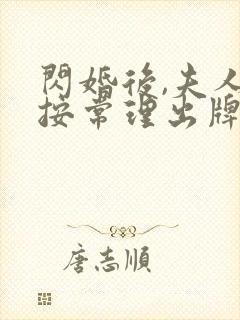 閃婚後,夫人
按常理出牌
唐志順